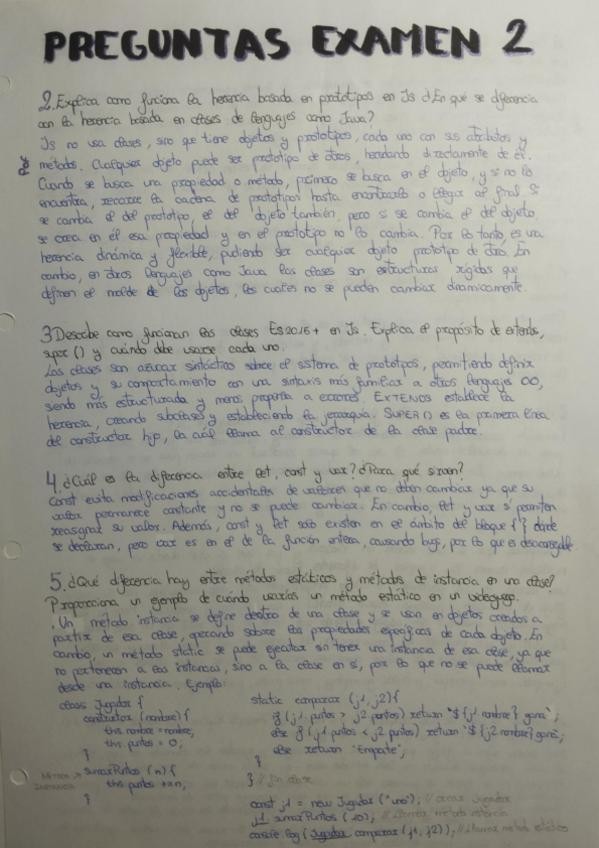 PREGUNTAS EXAMEN 2
2. Explica como funciona la herencia basada en prototipos en Js ¿En qué se diferencia
con la herencia basada en clases de lenguajes como Java?
Js no usa clases, sino que tiene objetos y prototipos, cada uno con sus atributos y
métodos. Cualquier objeto puede ser prototipo de otros, heredando directamente de él.
Cuando se busca una propiedad o método, primero se busca en el objeto, y si no lo
encuentra, recorre la cadena de prototipos hasta encontrarlo o llegar al final. Si
se cambia el del prototipo, el del objeto también, pero si se cambia el del objeto,
se crea en él esa propiedad y en el prototipo no lo cambia. Por lo tanto, es una
herencia dinámica y flexible, pudiendo ser cualquier objeto prototipo de otro. En
cambio, en otros lenguajes como Java las clases son estructuras rígidas que
definen el molde de los objetos, los cuales no se pueden cambiar dinamicamente.
3 Describe como funcionan las clases ES2015+ en Js. Explica el propósito de extends,
super() y cuándo debe usarse cada uno.
Las clases son azucar sintáctico sobre el sistema de prototipos, permitiendo definir
objetos y su comportamiento con una sintaxis más familiar a otros lenguajes OO,
siendo más estructurada y menos propensa a errores. EXTENDS establece la
herencia, creando subclases y estableciendo la jerarquía. SUPER() es la primera línea
del constructor hijo, la cuál llama al constructor de la clase padre.
4. ¿Cuál es la diferencia entre let, const y var? ¿Para qué sirven?
Const evita modificaciones accidentales de valores que no deben cambiar ya que su
valor permanece constante y no se puede cambiar. En cambio, let y var sí permiten
reasignar su valor. Además, const y let solo existen en el ámbito del bloque { } donde
se declaran, pero var es en el de la función entera, causando bugs, por lo que es desaconsejable.
5. ¿Qué diferencia hay entre métodos estáticos y métodos de instancia en una clase?
Proporciona un ejemplo de cuándo usarías un método estático en un videojuego.
Un método instancia se define dentro de una clase y se usan en objetos creados a
partir de esa clase, operando sobre las propiedades específicas de cada objeto. En
cambio, un método static se puede ejecutar sin tener una instancia de esa clase, ya que
no pertenecen a las instancias, sino a la clase en sí, por lo que no se puede llamar
desde una instancia. Ejemplo:
class Jugador {
constructor (nombre) {
this.nombre = nombre;
this.puntos = 0;
}
MÉTODO → INSTANCIA
sumarPuntos (n) {
this.puntos += n;
}
static comparar (j1, j2) {
if (j1.puntos > j2.puntos) return `${j1.nombre} gana`;
else if (j1.puntos < j2.puntos) return `${j2.nombre} gana`;
else return "Empate";
}
} // fin clase
const j1 = new Jugador ("uno"); // crear jugador
j1.sumarPuntos (10); // llamar método instancia
console.log (Jugador.comparar (j1, j2)); // llamar método estático